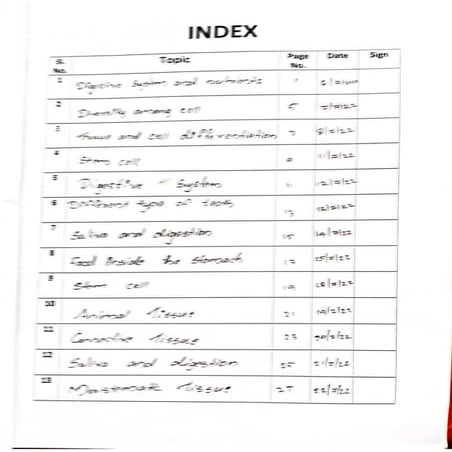 INDEX
Sl. No. Topic Page No. Date Sign
1 Digestive System and nutrients
2 Diversity among cell 5
3 Tissue and cell differentiation 7 8/2/22
4 Stem cell 9 11/2/22
5 Digestive System 11 12/2/22
6 Different type of teeth 13
7 Saliva and digestion 15 14/2/22
8 Food Inside the stomach 17 15/2/22
9 Stem cell 19 18/2/22
10 Animal Tissue 21 19/2/22
11 Connective Tissue 23 20/2/22
12 Saliva and digestion 25 21/2/22
13 Meristematic Tissue 27 22/2/22